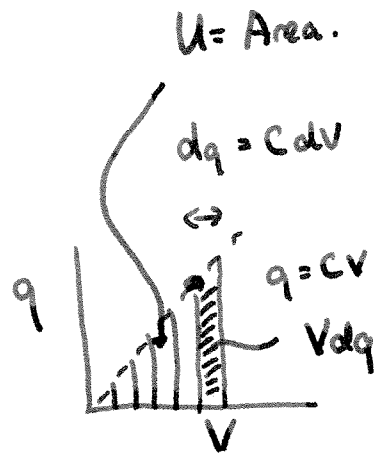 U = Area.
dq = C dV
q = CV
q
Vdq
V